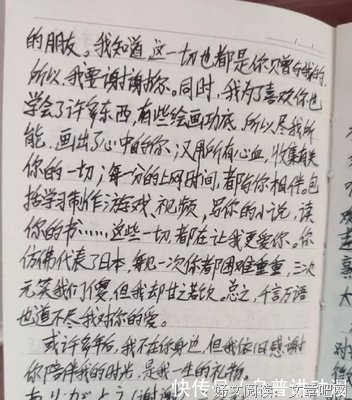 的朋友。我知道,这一切也都是你赠给我的,
所以,我要谢谢你。同时,我为了喜欢你也
学会了许多东西,有些绘画功底,所以尽我所
能,画出了心中的你;汉用所有心血,收集有关
你的一切;每一分的上网时间,都与你相伴。包
括学习制作游戏、视频,写你的小说,读
你的书……这些一切都在让我更爱你。你
仿佛代表了日本,每见一次你都困难重重,三次
元笑我们傻,但我却甘之若饮。总之,千言万语
也道不尽我对你的爱。
或许多年后,我不在你身边,但我依旧感谢
你陪伴我的时光,是我一生的礼物。
ありがとう(谢谢
快传号